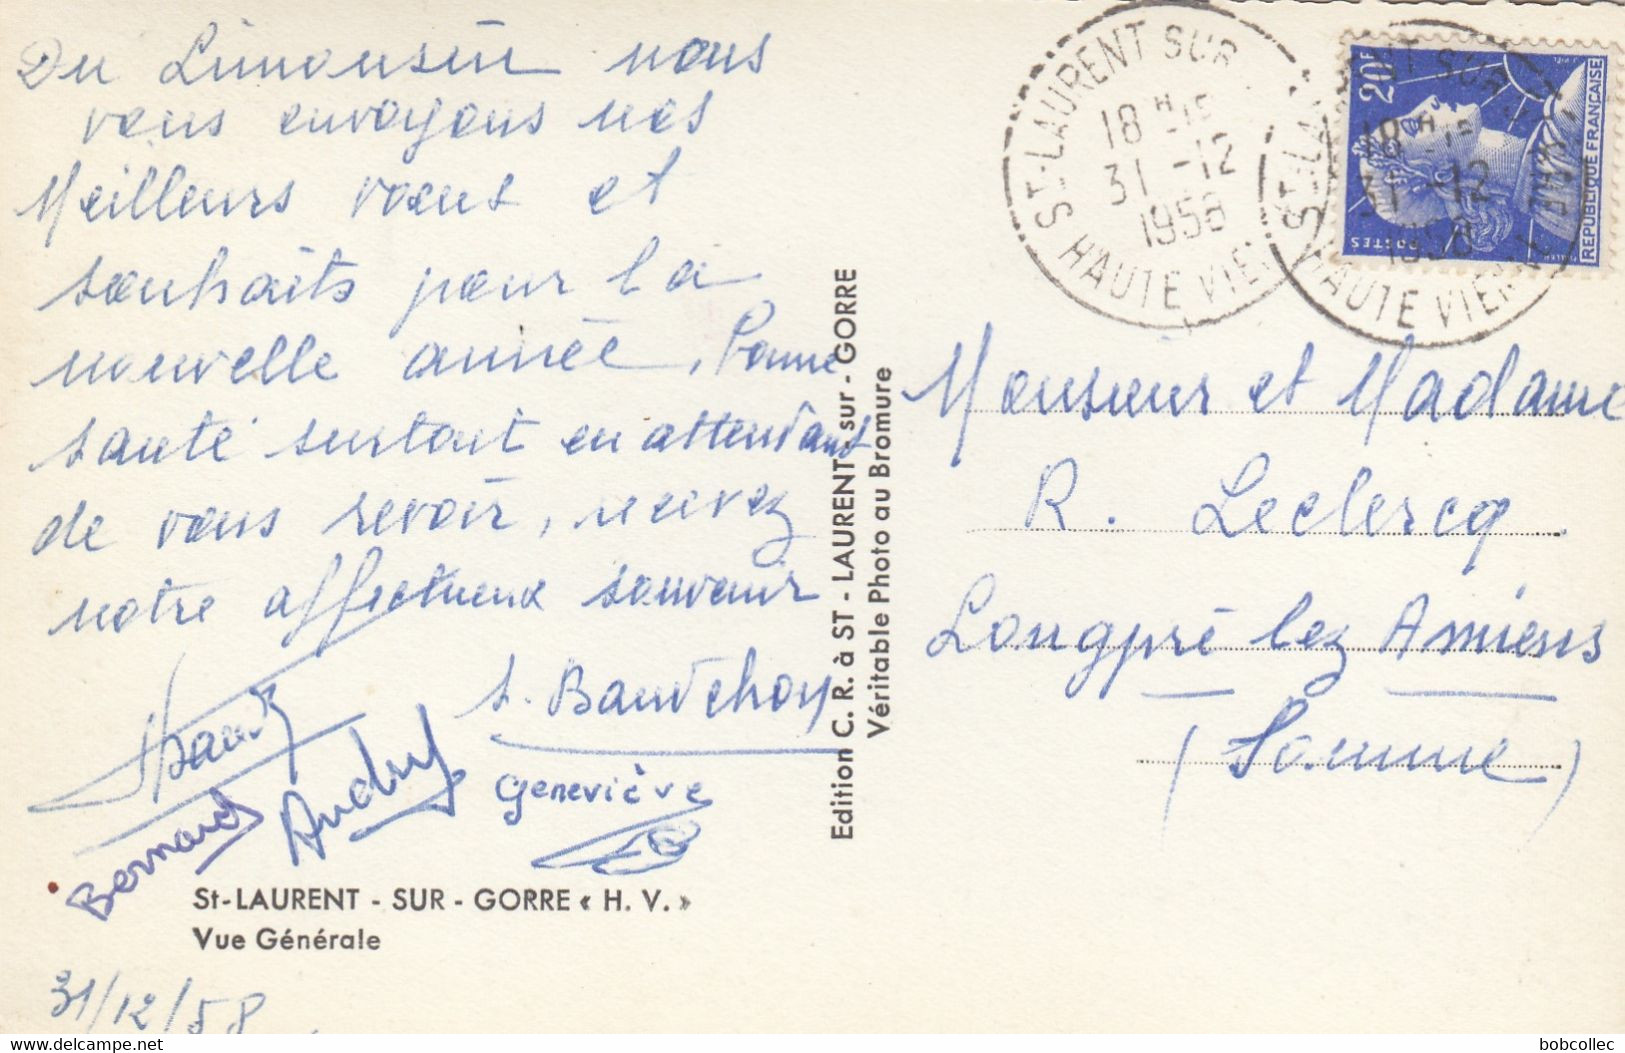 Du Limousin nous
vous envoyons nos
Meilleurs voeux et
souhaits pour la
nouvelle année, Bonne
santé surtout en attendant
de vous revoir, recevez
notre affectueux souvenir
Bauvchoy
Geneviève
Andry
Bernard
St-LAURENT - SUR - GORRE « H. V. »
Vue Générale
31/12/58
Edition C. R. à ST - LAURENT - sur - GORRE
Véritable Photo au Bromure
ST-LAURENT SUR
18 H 15
31 -12
1958
HAUTE VIE
20F
REPUBLIQUE FRANÇAISE
POSTES
ST-LA NT SUR
18 H 15
31 -12
1958
HAUTE VIEN
Monsieur et Madame
R. Leclercq
Longpré lez Amiens
(Somme)
bobcollec